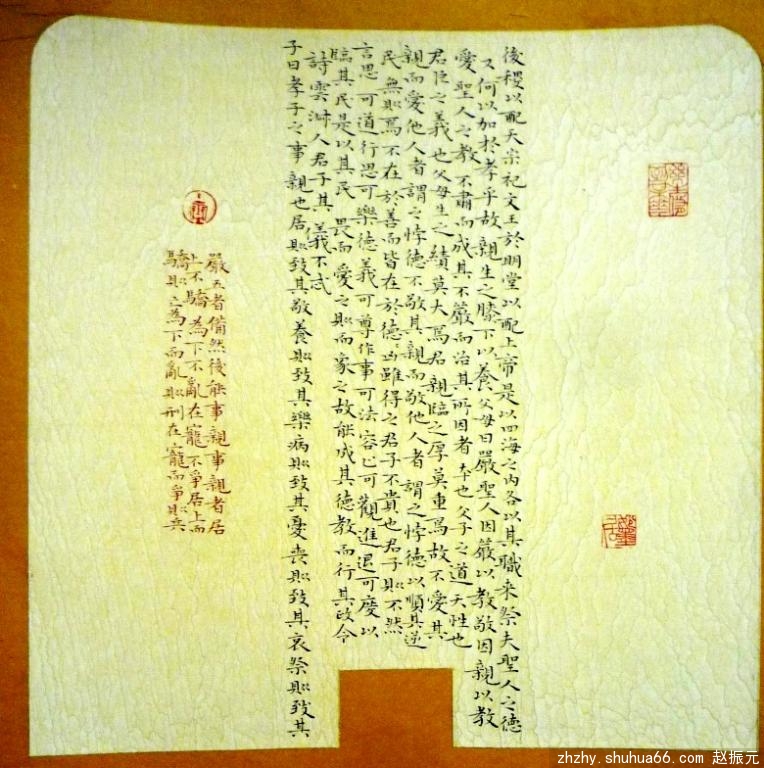 後稷以配天宗祀文王於明堂以配上帝是以四海之內各以其職來祭夫聖人之德
又何以加於孝乎故親生之膝下以養父母日嚴聖人因嚴以教敬因親以教
愛聖人之教不肅而成其不嚴而治其所因者本也父子之道天性也
君臣之義也父母生之績莫大焉君親臨之厚莫重焉故不愛其
親而愛他人者謂之悖德不敬其親而敬他人者謂之悖德以順其逆
民無則焉不在於善而皆在於德凶雖得之君子不貴也君子則不然
言思可道行思可樂德義可尊作事可法容止可觀進退可度以
臨其民是以其民畏而愛之則而象之故能成其德教而行其政令
詩雲淑人君子其儀不忒
子曰孝子之事親也居則致其敬養則致其樂病則致其憂喪則致其哀祭則致其
嚴五者備然後能事親事親者居
上不驕為下不亂在寵不爭居上而
驕則亡為下而亂則刑在寵而爭則兵
zhzhy.shuhua66.com 赵振元